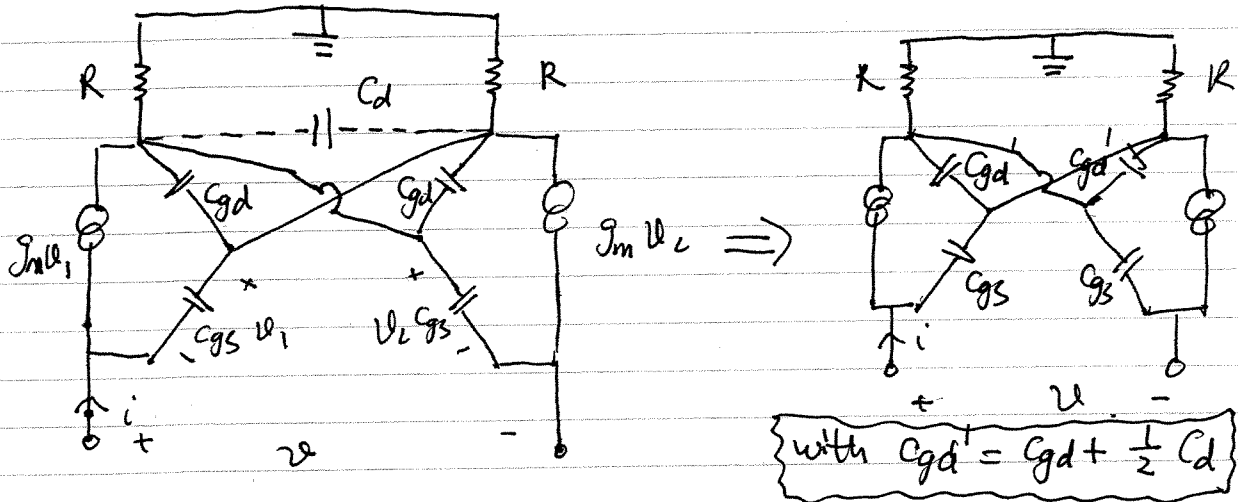 R
R
Cd
Cgd
Cgd
gmv1
gmv2
+
+
Cgs v1
v2 Cgs
-
-
i
+
v
-
⇒
R
R
Cgd'
Cgd'
Cgs
Cgs
i
+
v
-
with Cgd' = Cgd + 1/2 Cd